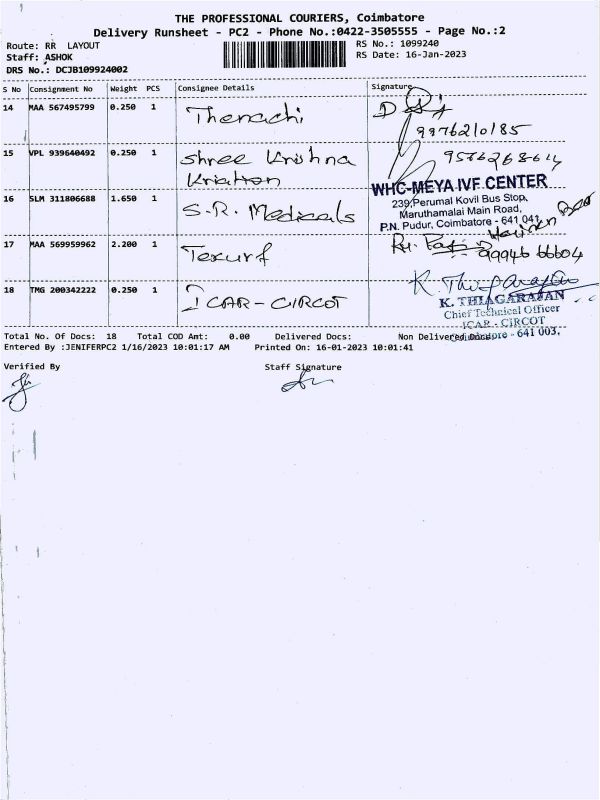 THE PROFESSIONAL COURIERS, Coimbatore
Delivery Runsheet - PC2 - Phone No.:0422-3505555 - Page No.:2
Route: RR LAYOUT
RS No.: 1099240
Staff: ASHOK
RS Date: 16-Jan-2023
DRS No.: DCJB109924002
S No Consignment No Weight PCS Consignee Details Signature
14 MAA 567495799 0.250 1 Thenachi
9976210185
15 VPL 939640492 0.250 1 Shree Krishna
Kriation
9566268614
16 SLM 311806688 1.650 1 S.R. Medicals
WHC-MEYA IVF CENTER
239,Perumal Kovil Bus Stop,
Maruthamalai Main Road,
P.N. Pudur, Coimbatore - 641 041.
17 MAA 569959962 2.200 1 Texurf
99946 66604
18 TMG 200342222 0.250 1 ICAR-CIRCOT
K. Thiagarajan
K. THIAGARAJAN
Chief Technical Officer
ICAR - CIRCOT
Coimbatore - 641 003.
Total No. Of Docs: 18 Total COD Amt: 0.00 Delivered Docs: Non Delivered Docs:
Entered By :JENIFERPC2 1/16/2023 10:01:17 AM Printed On: 16-01-2023 10:01:41
Verified By Staff Signature